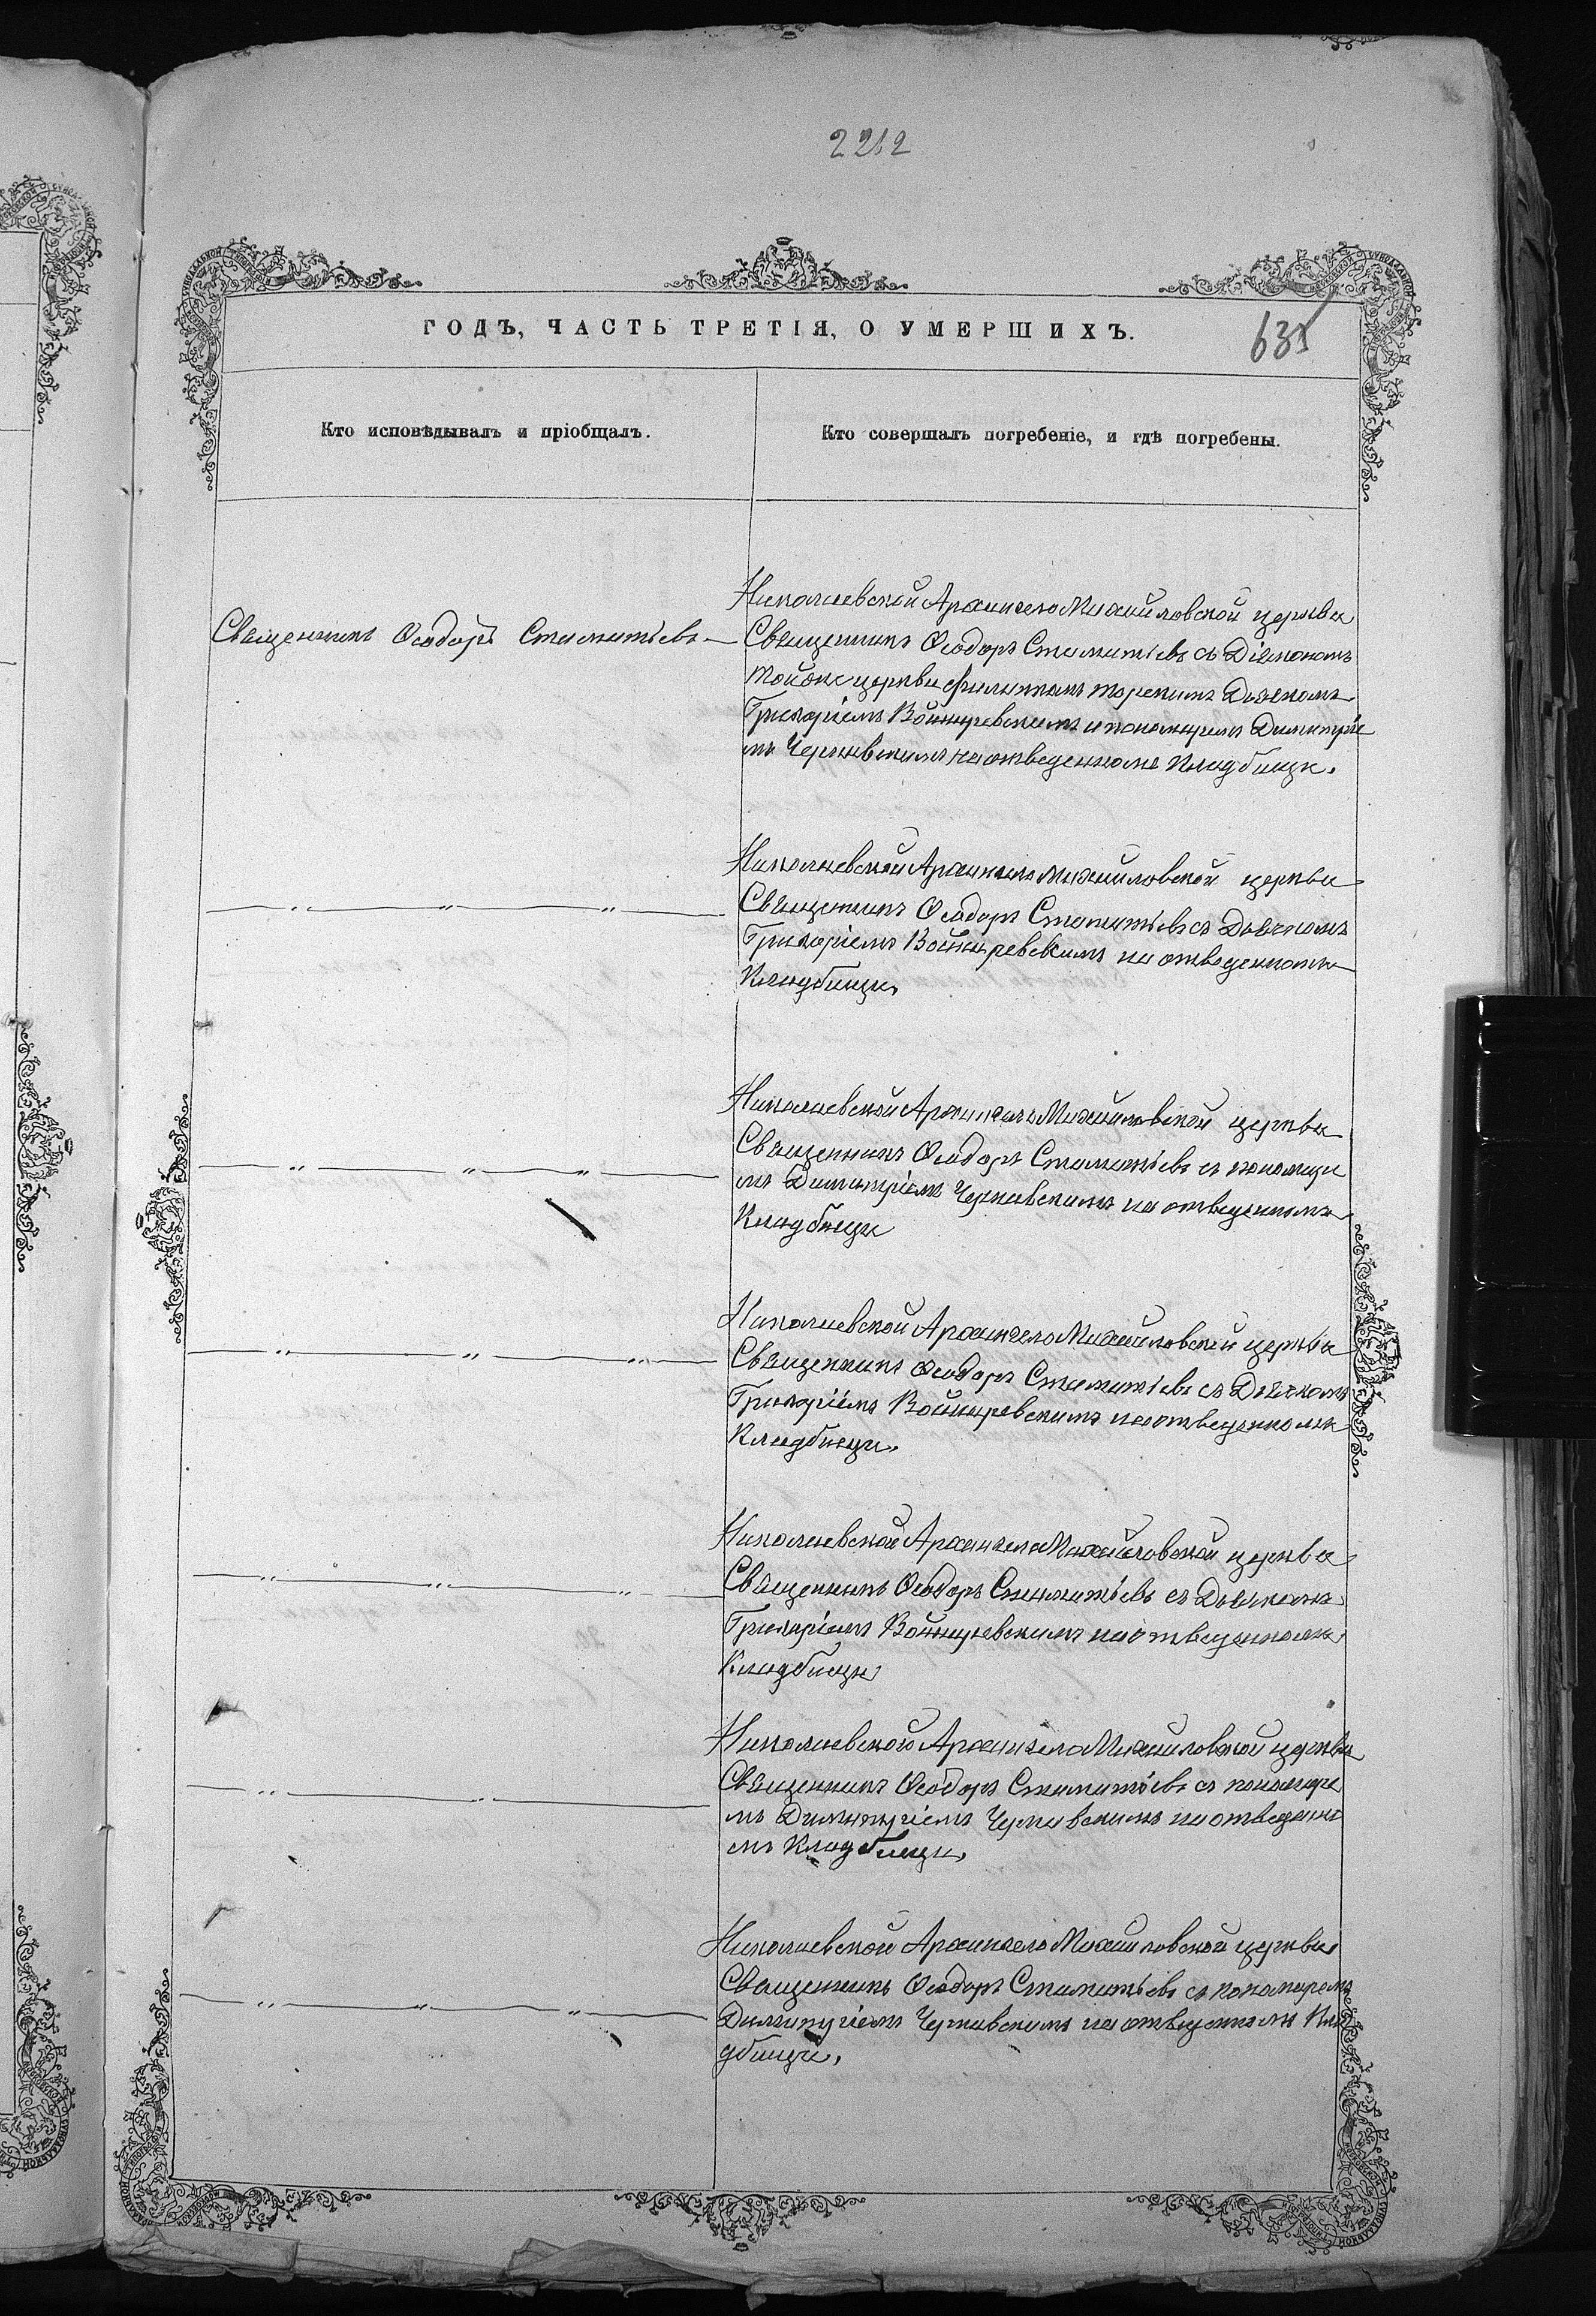 2212
ГОДЪ, ЧАСТЬ ТРЕТІЯ, О УМЕРШИХЪ.
635
Кто исповѣдывалъ и пріобщалъ.
Кто совершалъ погребеніе, и гдѣ погребены.
Священникъ Ѳеодоръ Стаматьевъ
Николаевской Архангело Михайловской церкви
Священникъ Ѳеодоръ Стаматіевъ съ Діякономъ
тойже церкви Дьячкомъ
Григоріемъ Войницевскимъ и пономаремъ Димитріе
мъ Чернявскимъ на отведенномъ Кладбищѣ.
Николаевской Архангело Михайловской церкви
Священникъ Ѳеодоръ Стаматіевъ съ Дьячкомъ
Григоріемъ на отведенномъ
Кладбищѣ,
Николаевской Архангело Михайловской церкви
Священникъ Ѳеодоръ Стаматіевъ съ пономаре
мъ Димитріемъ Чернявскимъ на отведенномъ
Кладбищѣ
Николаевской Архангело Михайловской церкви
Священникъ Ѳеодоръ Стаматіевъ съ Дьячкомъ
Григоріемъ на отведенномъ
Кладбищѣ.
Николаевской Архангело Михайловской церкви
Священникъ Ѳеодоръ Стаматіевъ съ Дьячкомъ
Григоріемъ на отведенномъ
Кладбищѣ
Николаевской Архангело Михайловской церкви
Священникъ Ѳеодоръ Стаматіевъ съ пономаре
мъ Димитріемъ Чернявскимъ на отведенно
мъ Кладбищѣ,
Николаевской Архангело Михайловской церкви
Священникъ Ѳеодоръ Стаматіевъ съ пономаремъ
Димитріемъ Чернявскимъ на отведенномъ Кла
дбищѣ,